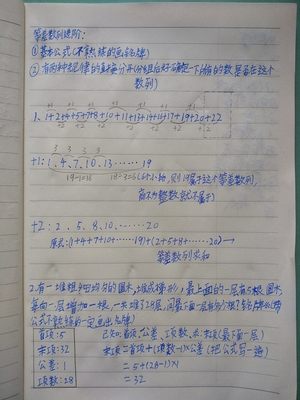 等差数列进阶:
①基本公式(不熟练的画铭牌)
②有两种规律的算式分开(分组后好确定一下,所有的数是否在这个
数列)
+1 +1 +1 +1
1、1+2+4+5+7+8+10+11+13+14+16+17+19+20+22
+2 +2 +2 +2 +2
3 3 3 3
+1: 1、4、7、10、13……19
19-1=18 18÷3=6 6+1=7, 则19属于这个等差数列,
+2: 2、5、8、10、……20
原式:(1+4+7+10+……19)+(2+5+8+……20)→
等差数列求和
2.有一堆粗细均匀的圆木,堆成梯形,最上面的一层有5根圆木
每向一层增加一根,一共堆了28层,问最下面一层有多少根?
公式不熟练的一定画出名牌)
首项:5 已知:首项、公差、项数,求:末项(最下面一层)
末项:32 末项=首项+(项数-1)×公差 (把公式写一遍)
公差:1 =5+(28-1)×1
项数:28 =32